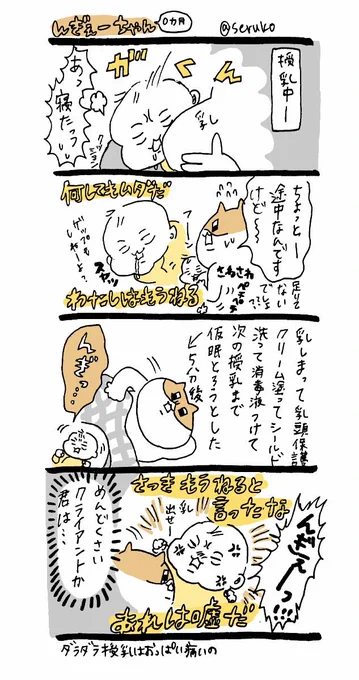 んぎぇーちゃん 0ヵ月
@seruko
授乳中ー
がくん
乳
あっ寝たっつい
何してもムダだ
ちょっとー
途中なんです
けどー
足りて
ないでしょ??
さわさわ
ペチペチ
スヤッ
ゲップも
わたしはもうねる
乳しまって乳頭保護
クリーム塗ってシールド
洗って消毒液つけて
次の授乳まで
仮眠とろうとした
5分後
んぎっ…
さっきもうねると
言ったな
んぎぇーっ!!!
乳出せー
めんどくさい
クライアントか
君は…
あれは嘘だ
ダラダラ授乳はおっぱい痛いの